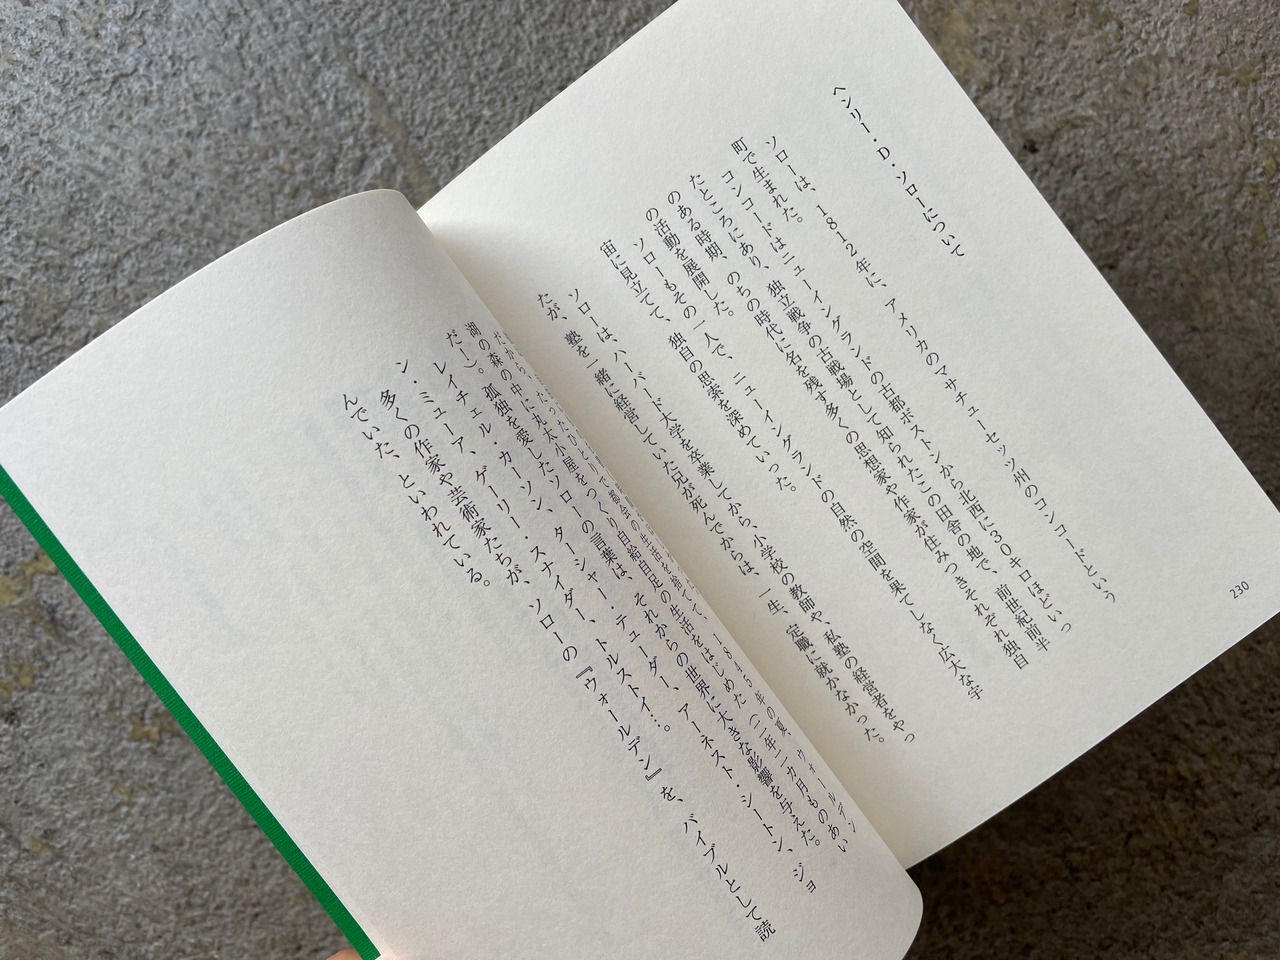 ヘンリー・D・ソローについて
ソローは、1812年に、アメリカのマサチューセッツ州のコンコードという
町で生まれた。
コンコードはニューイングランドの古都ボストンから北西に30キロほどいっ
たところにあり、独立戦争の古戦場として知られたこの田舎の地で、前世紀前半
のある時期、のちの時代に名を残す多くの思想家や作家が住みつきそれぞれ独自
の活動を展開した。
ソローもその一人で、ニューイングランドの自然の空間を果てしなく広大な宇
宙に見立てて、独自の思索を深めていった。
ソローは、ハーバード大学を卒業してから、小学校の教師や、私塾の経営者をやっ
たが、塾を一緒に経営していた兄が死んでからは、一生、定職に就かなかった。
230
だから、たったひとりで都会の生活を捨てて、1845年の夏、ウォールデン
湖の森の中に丸太小屋をつくり自給自足の生活をはじめた(二年二カ月ものあい
だ!)。孤独を愛したソローの言葉は、それからの世界に大きな影響を与えた。
レイチェル・カーソン、ターシャー・テューダー、アーネスト・シートン、ジョ
ン・ミューア、ゲーリー・スナイダー、トルストイ…。
多くの作家や芸術家たちが、ソローの『ウォールデン』を、バイブルとして読
んでいた、といわれている。